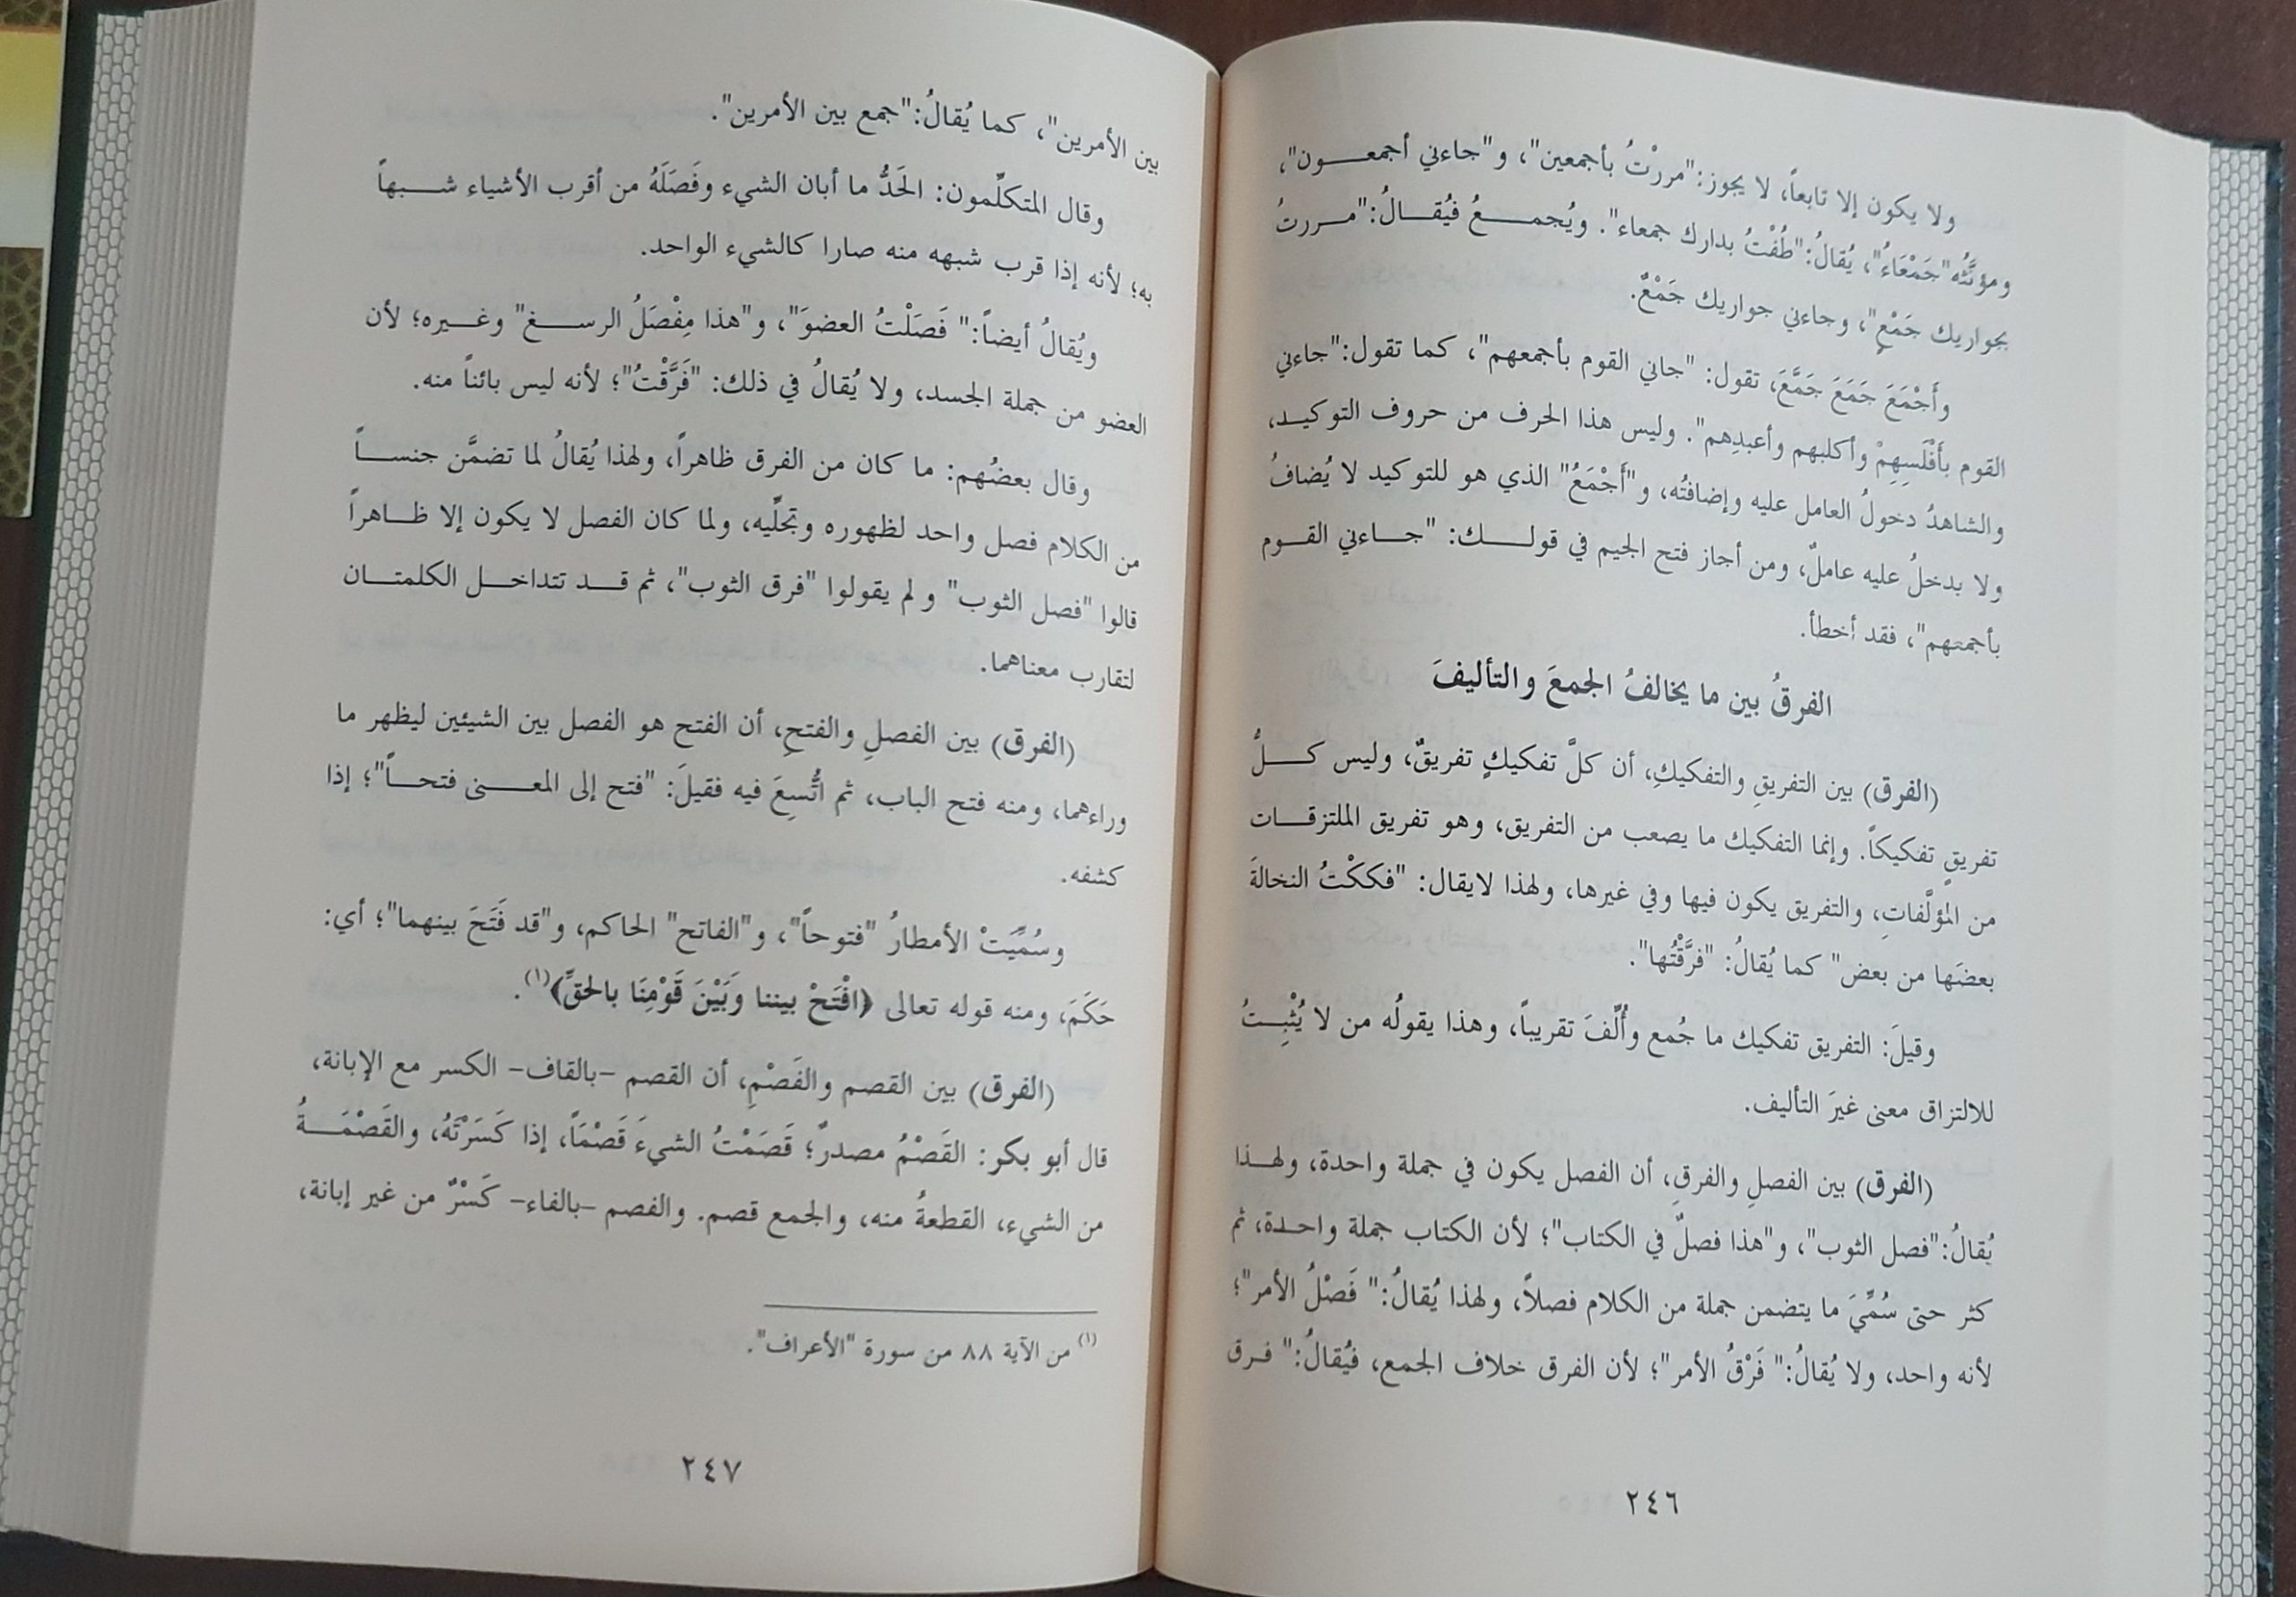 ولا يكون إلا تابعاً، لا يجوز:"مررْتُ بأجمعين"، و"جاءني أجمعـــون"،
ومؤنَّثُه"جَمْعَاءُ"، يُقالُ:"طُفْتُ بدارك جمعاء". ويُجمـــعُ فيُقـــالُ:"مـــررتُ
بجواريك جَمْعٍ"، وجاءني جواريك جَمْعٌ.
وأَجْمَعَ جَمَعَ جَمَّعَ، تقول: "جاني القوم بأجمعهم"، كما تقول:"جاءني
القوم بأَفْلَسِهِمْ وأكلبهم وأعبدِهم". وليس هذا الحرف من حروف التوكيـد،
والشاهدُ دخولُ العامل عليه وإضافتُه، و"أَجْمَعُ" الذي هو للتوكيد لا يُضافُ
ولا يدخلُ عليه عاملٌ، ومن أجاز فتح الجيم في قولـــك: "جـــاءني القـــوم
بأجمَعهم"، فقد أخطأ.
الفرقُ بين ما يخالفُ الجمعَ والتأليفَ
(الفرق) بين التفريقِ والتفكيكِ، أن كلَّ تفكيكٍ تفريقٌ، وليس كـــلُّ
تفريقٍ تفكيكاً. وإنما التفكيك ما يصعب من التفريق، وهو تفريق الملتزقـــات
من المؤلَّفاتِ، والتفريق يكون فيها وفي غيرها، ولهذا لايقال: "فككْتُ النخالةَ
بعضَها من بعض" كما يُقالُ: "فرَّقْتُها".
وقيلَ: التفريق تفكيك ما جُمع وأُلِّفَ تقريباً، وهذا يقولُه من لا يُثْبِـــتُ
للالتزاق معنى غيرَ التأليف.
(الفرق) بين الفصلِ والفرقِ، أن الفصل يكون في جملة واحدة، ولهـــذا
يُقالُ:"فصل الثوب"، و"هذا فصلٌ في الكتاب"؛ لأن الكتاب جملة واحـدة، ثم
كثر حتى سُمِّيَ ما يتضمن جملة من الكلام فصلاً، ولهذا يُقالُ:" فَصْلُ الأمر"؛
لأنه واحد، ولا يُقالُ:" فَرْقُ الأمر"؛ لأن الفرق خلاف الجمع، فيُقالُ:" فـرق
٢٤٦
بين الأمرين"، كما يُقالُ:"جمع بين الأمرين".
وقال المتكلِّمون: الحَدُّ ما أبان الشيء وفَصَلَهُ من أقرب الأشياء شـــبهاً
به؛ لأنه إذا قرب شبهه منه صارا كالشيء الواحد.
ويُقالُ أيضاً:" فَصَلْتُ العضوَ"، و"هذا مِفْصَلُ الرســـغ" وغـــيره؛ لأن
العضو من جملة الجسد، ولا يُقالُ في ذلك: "فَرَّقْتُ"؛ لأنه ليس بائناً منه.
وقال بعضُهم: ما كان من الفرق ظاهراً، ولهذا يُقالُ لما تضمَّن جنســـاً
من الكلام فصل واحد لظهوره وتجلِّيه، ولما كان الفصل لا يكون إلا ظـــاهراً
قالوا "فصل الثوب" ولم يقولوا "فرق الثوب"، ثم قـــد تتداخـــل الكلمتـــان
لتقارب معناهما.
(الفرق) بين الفصلِ والفتحِ، أن الفتح هو الفصل بين الشيئين ليظهر ما
وراءهما، ومنه فتح الباب، ثم اتُّسِعَ فيه فقيلَ: "فتح إلى المعـــنى فتحـــاً"؛ إذا
كشفه.
وسُمِّيَتْ الأمطارُ "فتوحاً"، و"الفاتح" الحاكم، و"قد فَتَحَ بينهما"؛ أي:
حَكَمَ، ومنه قوله تعالى ﴿افْتَحْ بيننا وبَيْنَ قَوْمِنَا بالحقِّ﴾(١).
(الفرق) بين القصم والفَصْمِ، أن القصم -بالقاف- الكسر مع الإبانة،
قال أبو بكر: القَصْمُ مصدرٌ؛ قَصَمْتُ الشيءَ قَصْمَاً، إذا كَسَرْتَهُ، والقَصْمَـــةُ
من الشيء، القطعةُ منه، والجمع قصم. والفصم -بالفاء- كَسْرٌ من غير إبانة،
(١) من الآية ٨٨ من سورة "الأعراف".
٢٤٧